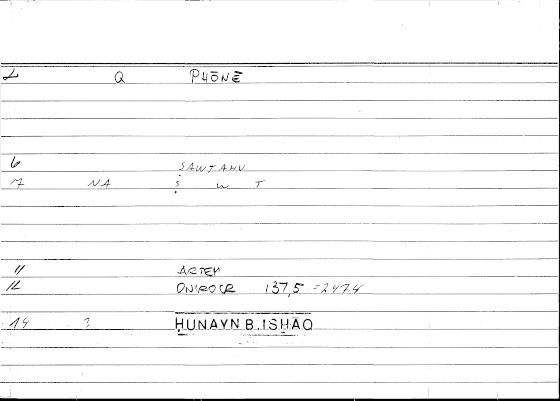 1 Q PHŌNĒ
6 SAWTANU
7 NA Ṣ W T
11 ARTEM
12 ONIROCR 137,5 = 247.4
14 ? HUNAYN B. ISHĀQ